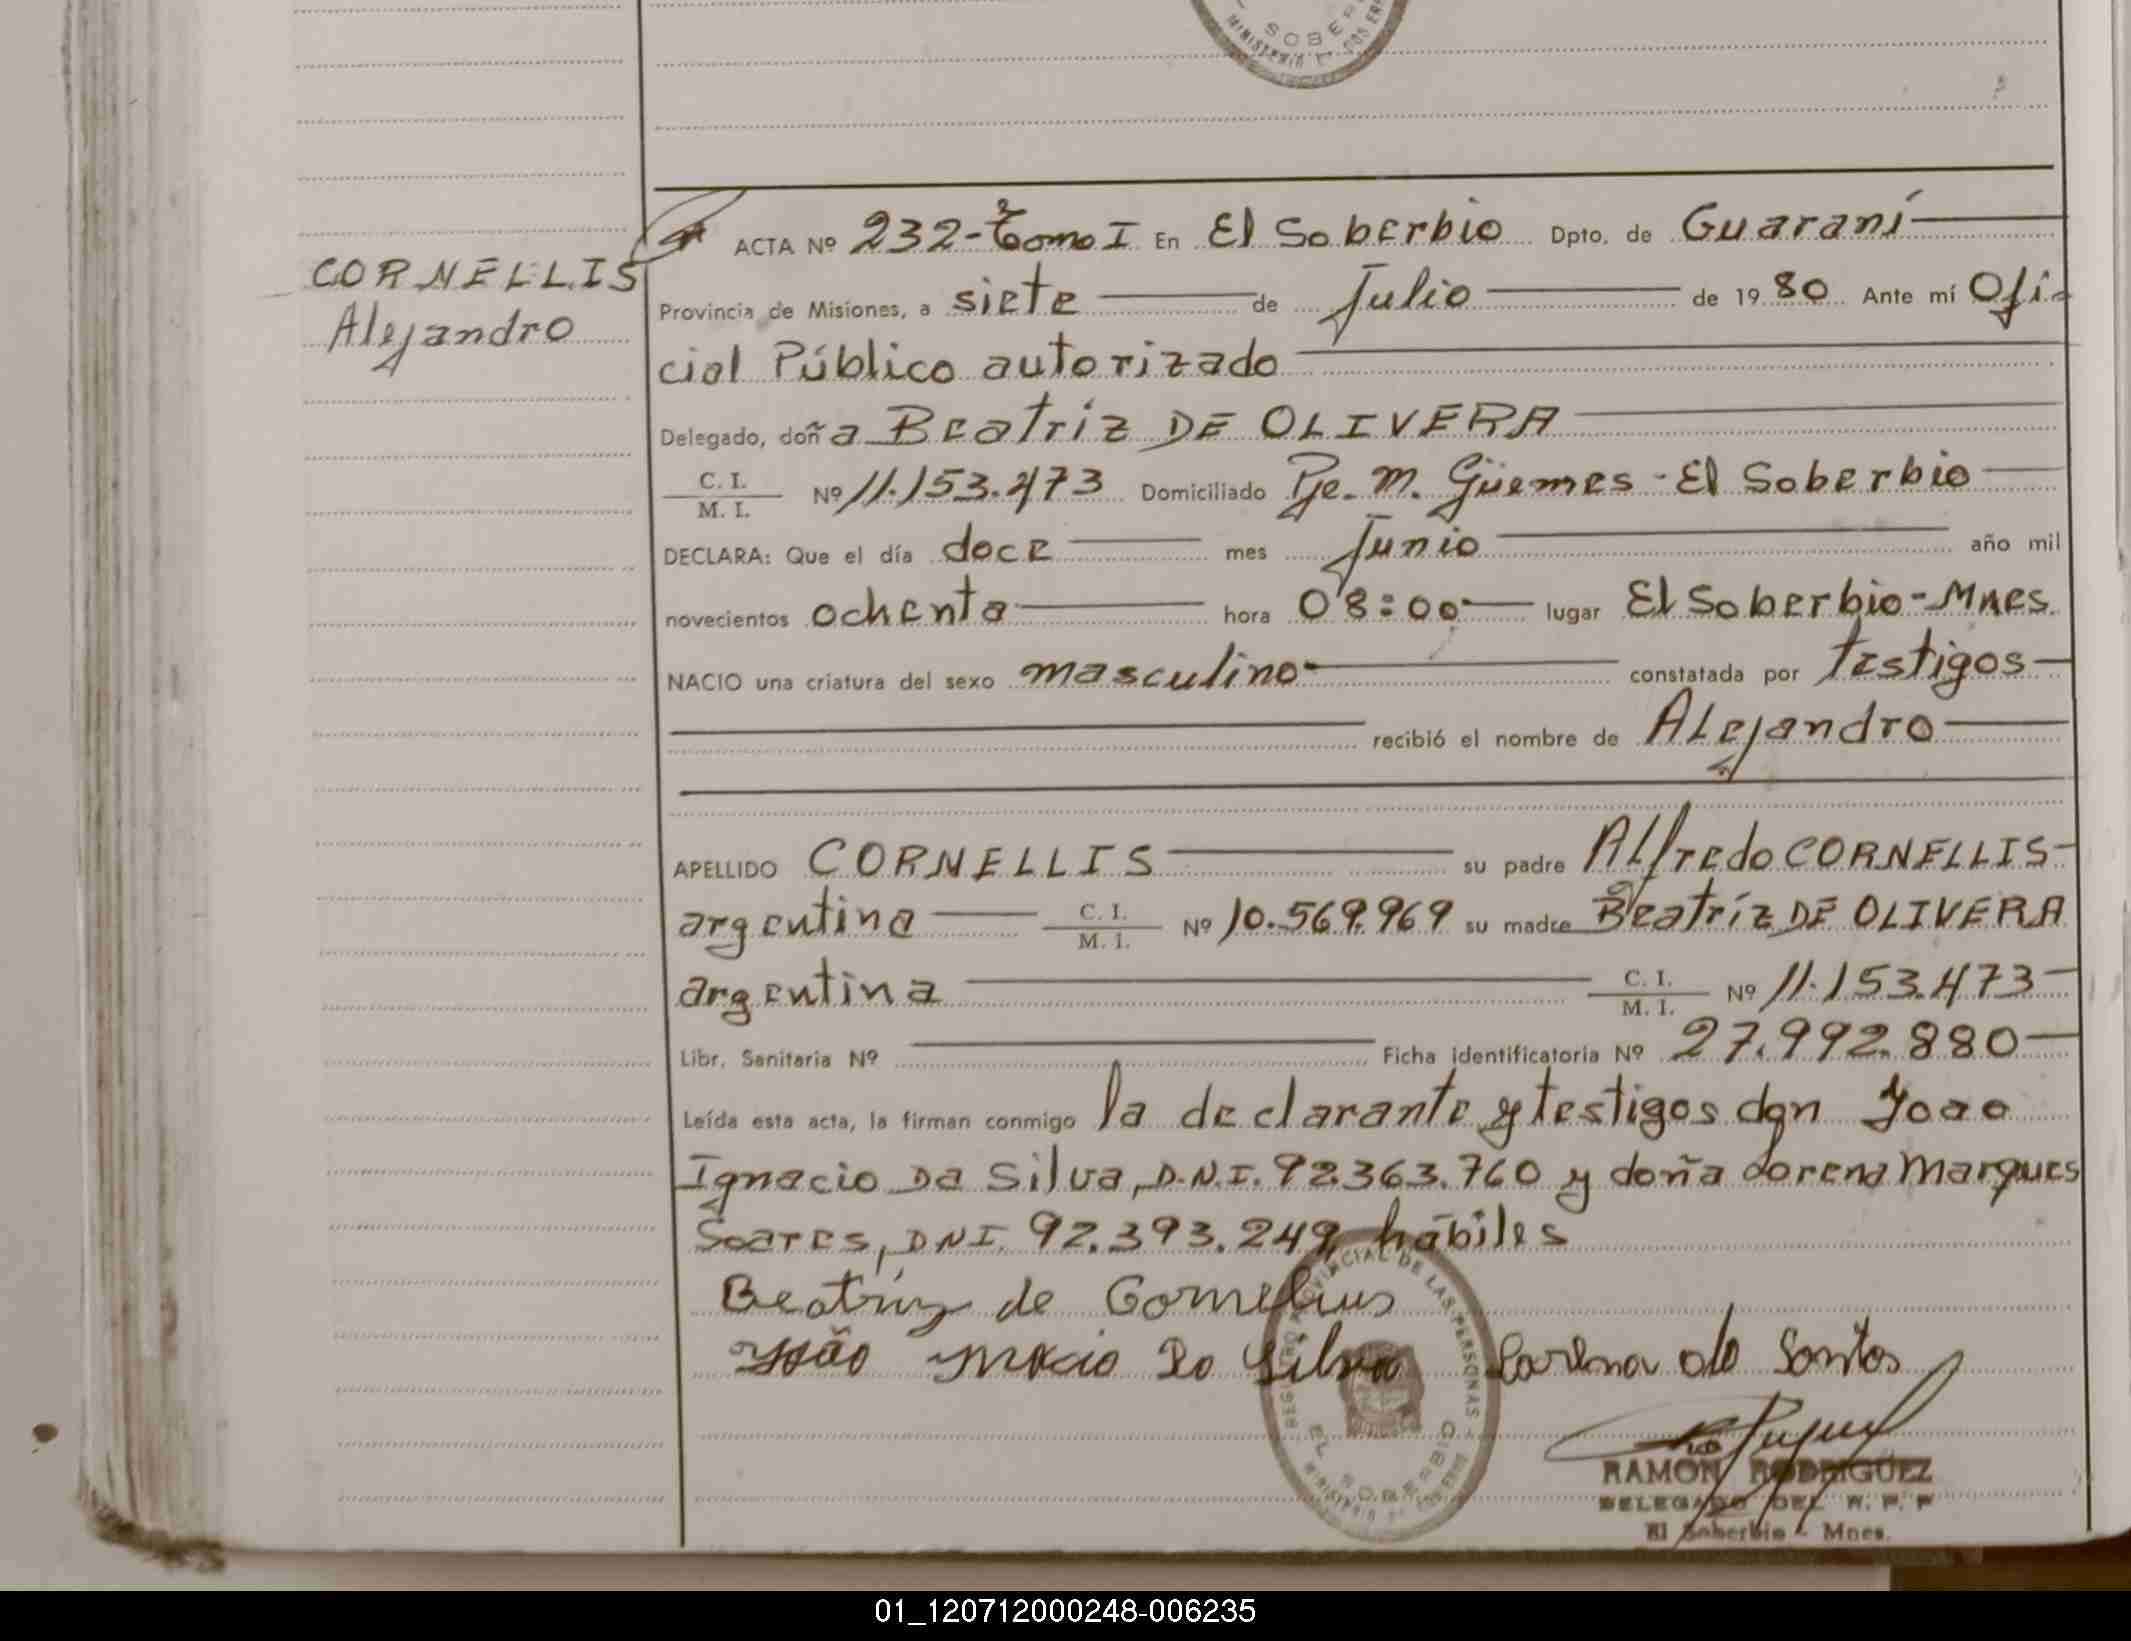 SOBER
MINISTERIO
ACTA Nº 232-Tomo I En El Soberbio Dpto. de Guaraní
CORNELLIS
Alejandro
Provincia de Misiones, a siete de Julio de 1980 Ante mí Ofi
cial Público autorizado
Delegado, doña Beatriz DE OLIVERA
C. I.
M. I. Nº 11.153.473 Domiciliado Pje. M. Güemes - El Soberbio
DECLARA: Que el día doce mes Junio año mil
novecientos ochenta hora 08:00 lugar El Soberbio-Mnes.
NACIO una criatura del sexo masculino constatada por testigos
recibió el nombre de Alejandro
APELLIDO CORNELLIS su padre Alfredo CORNELLIS
argentina C. I. M. I. Nº 10.569.969 su madre Beatríz DE OLIVERA
argentina C. I. M. I. Nº 11.153.473
Libr. Sanitaria Nº Ficha identificatoria Nº 27.992.880
Leída esta acta, la firman conmigo la declarante y testigos don Joao
Ignacio Da Silva, D.N.I. 92.363.760 y doña Lorena Marques
Soares, DNI. 92.393.249, hábiles
Beatriz de Cornelius
João Da Silva
de Santos
PROVINCIAL DE LAS PERSONAS
EL SOBERBIO
RAMON RODRIGUEZ
DELEGADO DEL R. P. P
El Soberbio - Mnes.
01_120712000248-006235